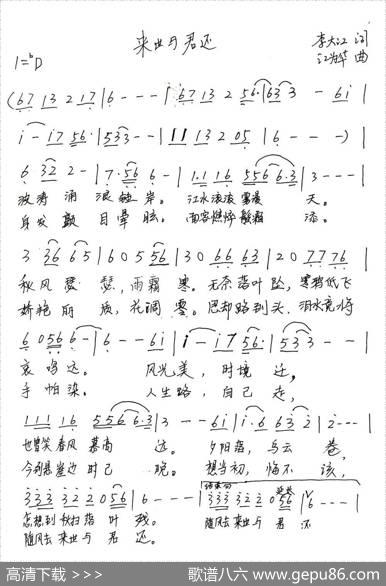 来世与君还
1=ᵇD
李大江 词
江华 曲
(67 13 2 17 | 6 - - - | 67 13 2 56 | 63 3 - 6i |
i - i7 56· | 533 - - | 11 13 2 05 | 6 - - -) |
6 32 2 - | 7·56 6 - | 1·1 16 556 6·3 | 3 - - - |
波涛涌浪 岸。江水滚滚 天。
身发颤 目晕眩。面容燃烧 添。
3 36 65 | 6 05 556 | 30 66 63 | 20 77 76 |
秋风瑟瑟,雨霜寒。无奈落叶坠,寒鸦低飞
娇艳丽质,花凋零。恩却路到头,泪水竟将
6 0566 - | 6 - - 6i | i - i7 56· | 533 - - |
哀鸣远。风光美,时境迁,
手帕染。人生路,自己走,
111 16 556 6·3 | 3 - - 6i | i·6 63 2 | 2 - - - |
也曾笑春风暮尚远。夕阳落,乌云卷,
今到悬崖边时已晚。想当初,悔不该,
结束句
333 322 056 | 6 - - - | 333 322 056 | 6 - - - ||
怎想到秋扫落叶残。随风去来世与君还
随风去来世与君还。
高清下载 >>>
歌谱八六 www.gepu86.com